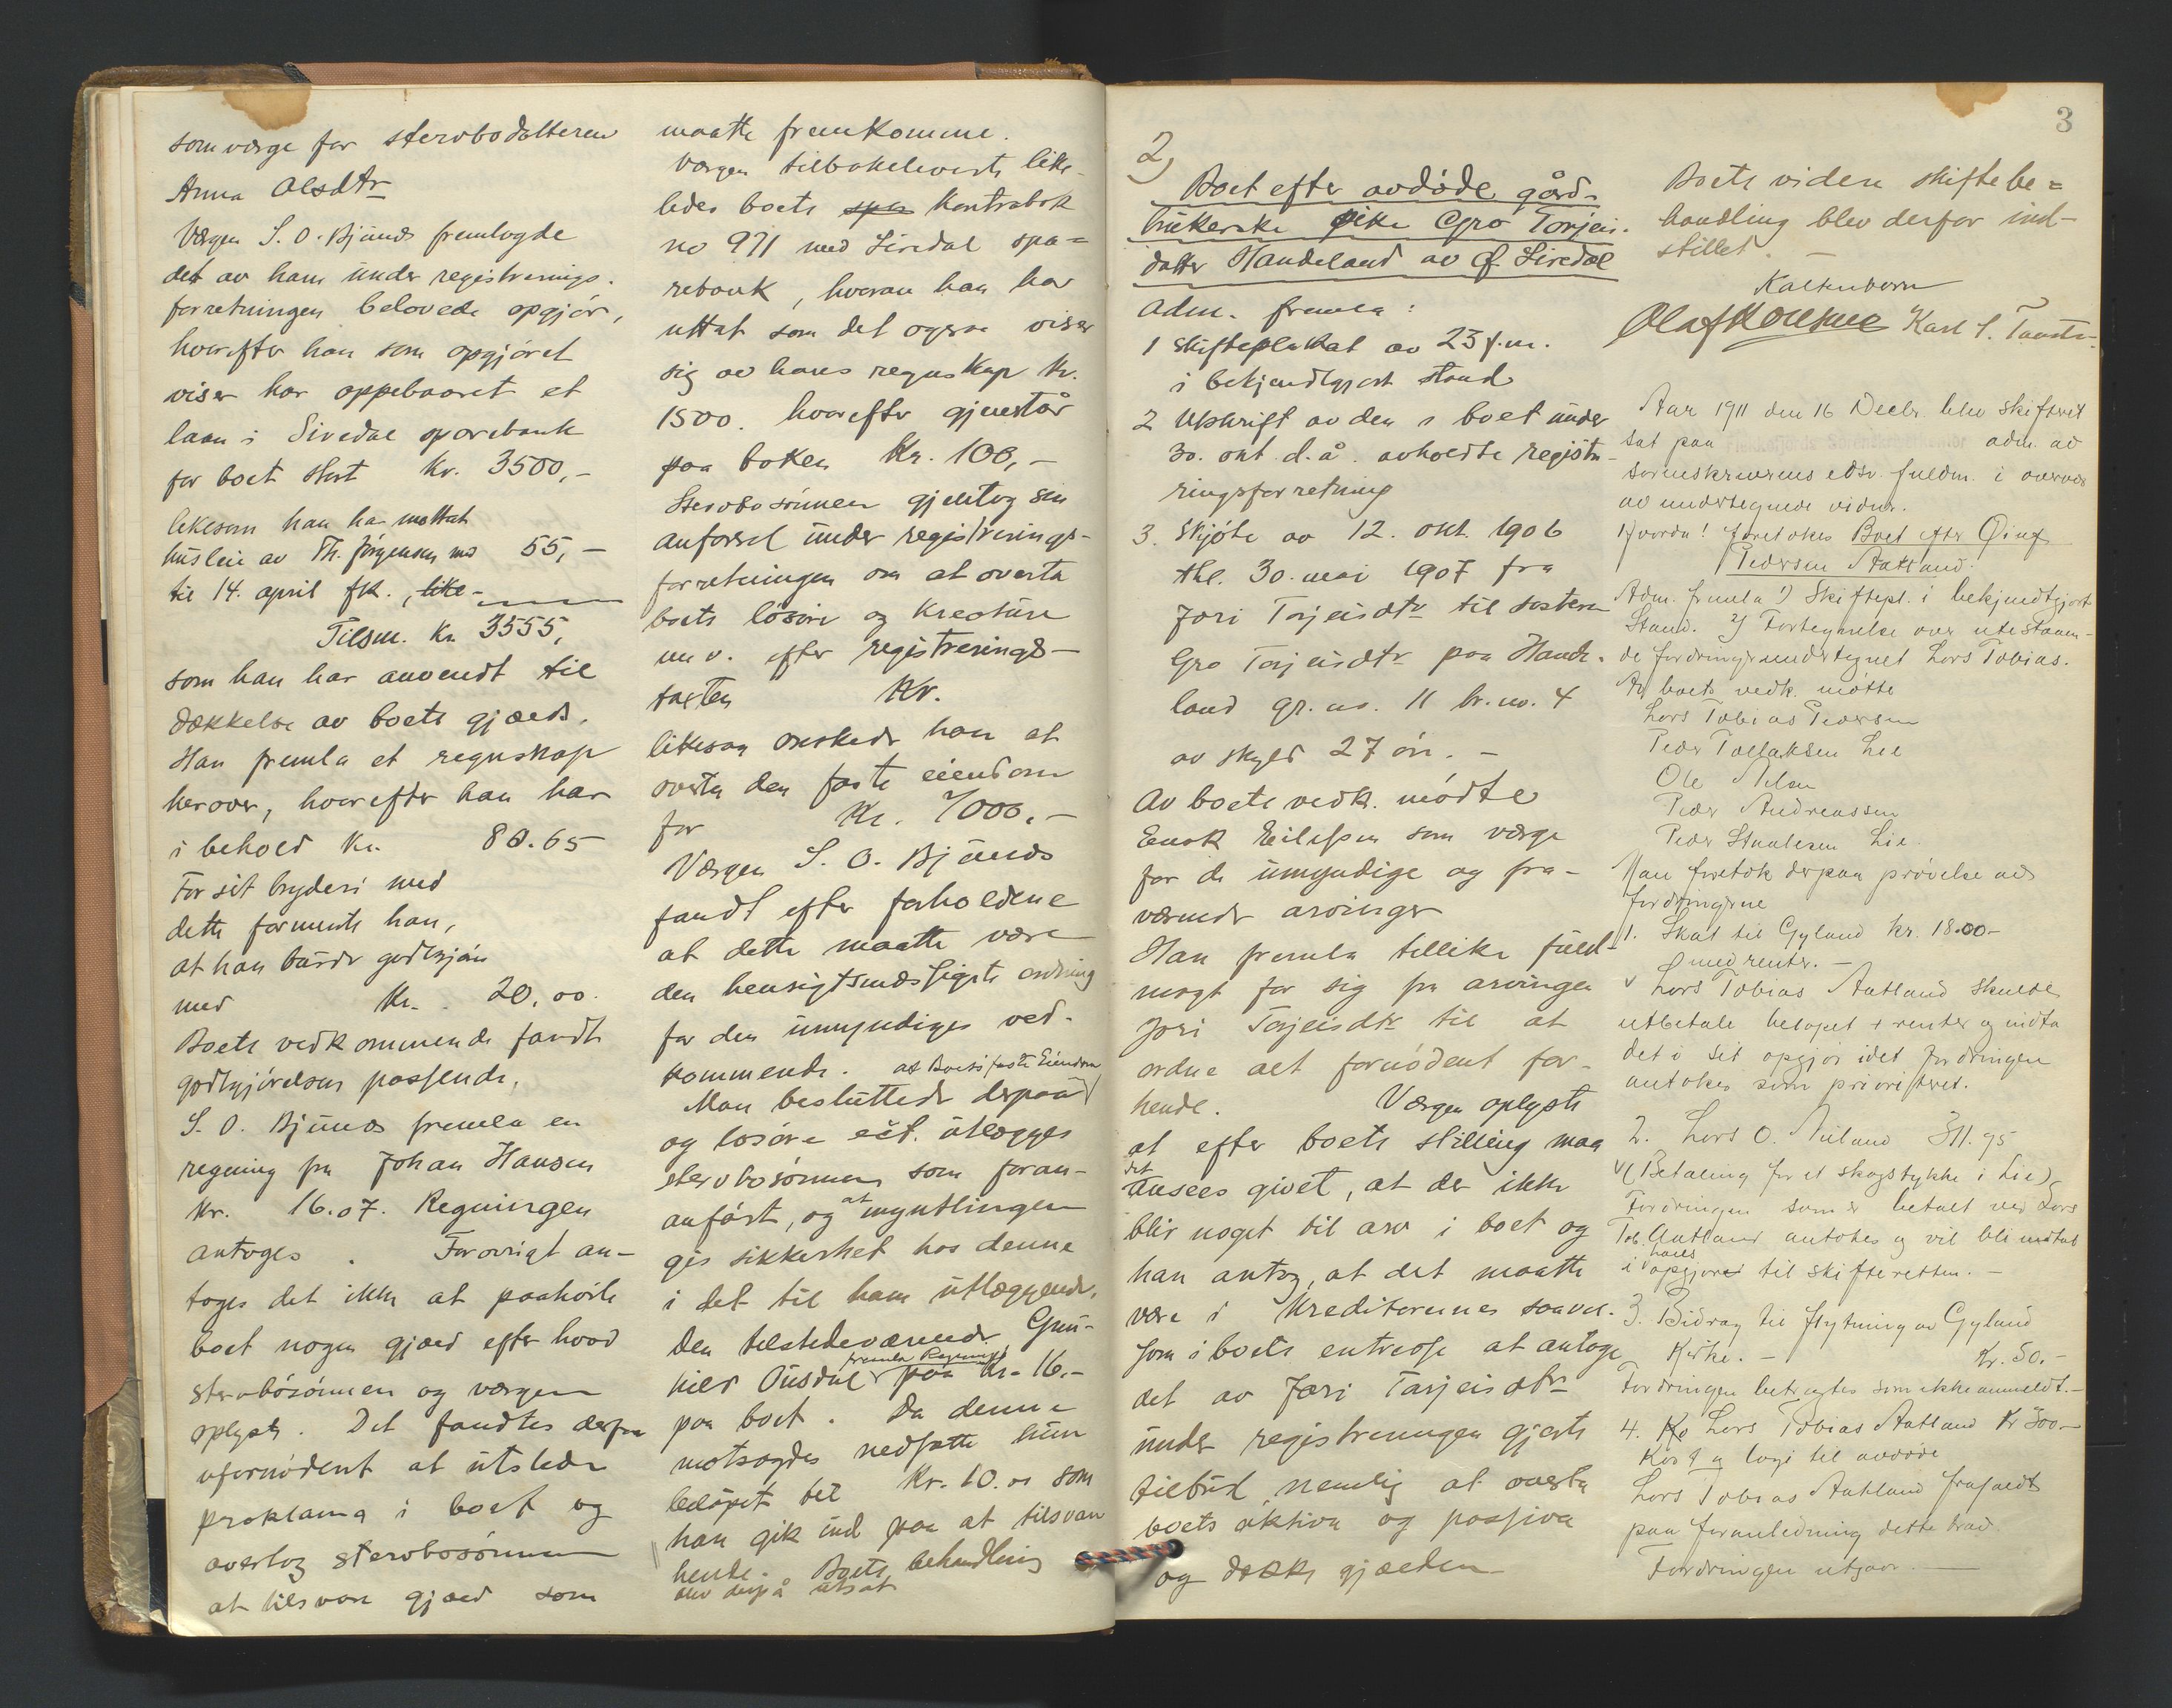 som værge for stervbodatteren
Anna Olsdtr
Værgen S. O. Bjünes fremlagde
det av ham ünder registrerings-
forretningen belovede opgjør,
hvorefter han som opgjøret
viser har oppebaaret et
laan i Siredal sparebank
for boet stort Kr. 3500,-
likesom han har mottat
husleie av Th. Jørgensen med 55,-
til 14. april fk., like-
Tilsm. Kr. 3555,
som han har anvendt til
dækkelse av boets gjæld.
Han fremla et regnskap
herover, hvorefter han har
i behold Kr. 80.65
For sit bryderi med
dette formente han,
at han bürde godtgjøres
med Kr. 20.00.
Boets vedkommende fandt
godtgjørelsen passende.
S. O. Bjünes fremla en
regning fra Johan Hansen
Kr. 16.07. Regningen
antoges. Forøvrigt an-
toges det ikke at paahvile
boet nogen gjæld efter hvad
stervbosønnen og værgen
oplyste. Det fandtes derfor
ufornødent at ütstede
proklama i boet og
overtog stervbosønnen
at tilsvare gjæld som
maatte fremkomme.
Værgen tilbakeleverte like-
ledes boets spa Kontrabok
no 971 med Siredal spa=
rebank, hvorav han har
uttat som det ogsaa viser
sig av hans regnskap kr.
1500. hvorefter gjenstår
paa boken Kr. 100,-
Stervbosønnen gjentog sin
anførsel ünder registrerings-
forretningen om at overta
boets løsøre og kreatüre
m v. efter registrerings-
taxten Kr.
likesaa ønskede han at
overta den faste eiendom
for Kr. 7000.-
Værgen S. O. Bjünes
fandt efter forholdene
at dette maatte være
den hensigtsmæssigste ordning
for den ümyndiges ved-
kommende. at Boets faste Eiendom
Man beslüttede derpaa
og løsøre ect. ütlægges
stervbosønnen som foran-
anført, og at myntlingen
gis sikkerhet hos denne
i det til ham ütlæggende.
Den tilstedeværende Gün-
hild Oüsdal fremla Regning paa Kr. 16.-
paa boet. Da denne
motsagdes nedsatte hün
beløpet til Kr. 10.00 som
han gik ind paa at tilsvare
hende. Boets behandling
blev derpå ütsat
3
2)
Boet efter avdøde gård-
brükerske pike Gro Torjeis-
datter Handeland av Ø. Siredal
Adm. fremla:
1 skifteplakat av 23 f.m.
i bekjendtgjort stand
2 Utskrift av den i boet ünder
30. okt. d.å. avholdte registre-
ringsforretning
3. Skjøte av 12. okt. 1906
thl. 30. mai 1907 fra
Jori Torjeisdtr til søsteren
Gro Torjeisdtr paa Hande-
land gr. no. 11 br. no. 4
av skyld 27 øre. -
Av boets vedk. mødte
Enok Eilefsen som værge
for de ümyndige og fra-
værende arvinger
Han fremla tillike füld-
magt for sig fra arvingen
Jori Torjeisdtr til at
ordne alt fornødent for
hende. Værgen oplyste
at efter boets stilling maa
det ansees givet, at der ikke
blir noget til arv i boet og
han antog, at det maatte
være i Kreditorernes saavel
som i boets interesse at antage
det av Jori Torjeisdtr
ünder registreringen gjorte
tilbüd, nemlig at overta
boets aktiva og passiva
og dække gjælden
Boets videre skiftebe=
handling blev derfor ind-
stillet. -
Kaltenborn
Karl S.
Aar 1911 den 16 Decbr. blev skifteret
sat paa Flekkefjords Sorenskriverkontor adm. av
sorenskriverens edsv. fuldm. i overvær
av undertegnede vidner.
Hvorda! foretokes Boet efter
Pedersen Aatland.
Adm. fremla 1) Skiftepl. i bekjendtgjort
Stand. 2) Fortegnelse over utestaaen-
de fordringer undertegnet Lars Tobias.
Av boets vedk. møtte
Lars Tobias Pedersen
Peder Tollaksen Lie
Ole Nilsen
Peder Andreassen
Peder Staalesen Lie.
Man foretok derpaa prøvelse av
fordringerne
1. Skat til Gyland kr. 18.00-
med renter. -
Lars Tobias Aatland skulde
utbetale beløpet + renter og indta
det i sit opgjør idet fordringen
antokes som prioritert.
2. Lars O. 311.95
(Betaling for et skogstykke i Lie)
Fordringen som er betalt ved Lars
Tob. Aatland antokes og vil bli indtat
i hans opgjøret til skifteretten. -
3. Bidrag til flytning av Gyland
Kirke. - Kr. 50.-
Fordringen betragtes som ikke anmeldt. -
4. Lars Tobias Aatland Kr 300-
Kost og logi til avdøde
Lars Tobias Aatland frafaldt
paa foranledning dette krav.
Fordringen utgaar.